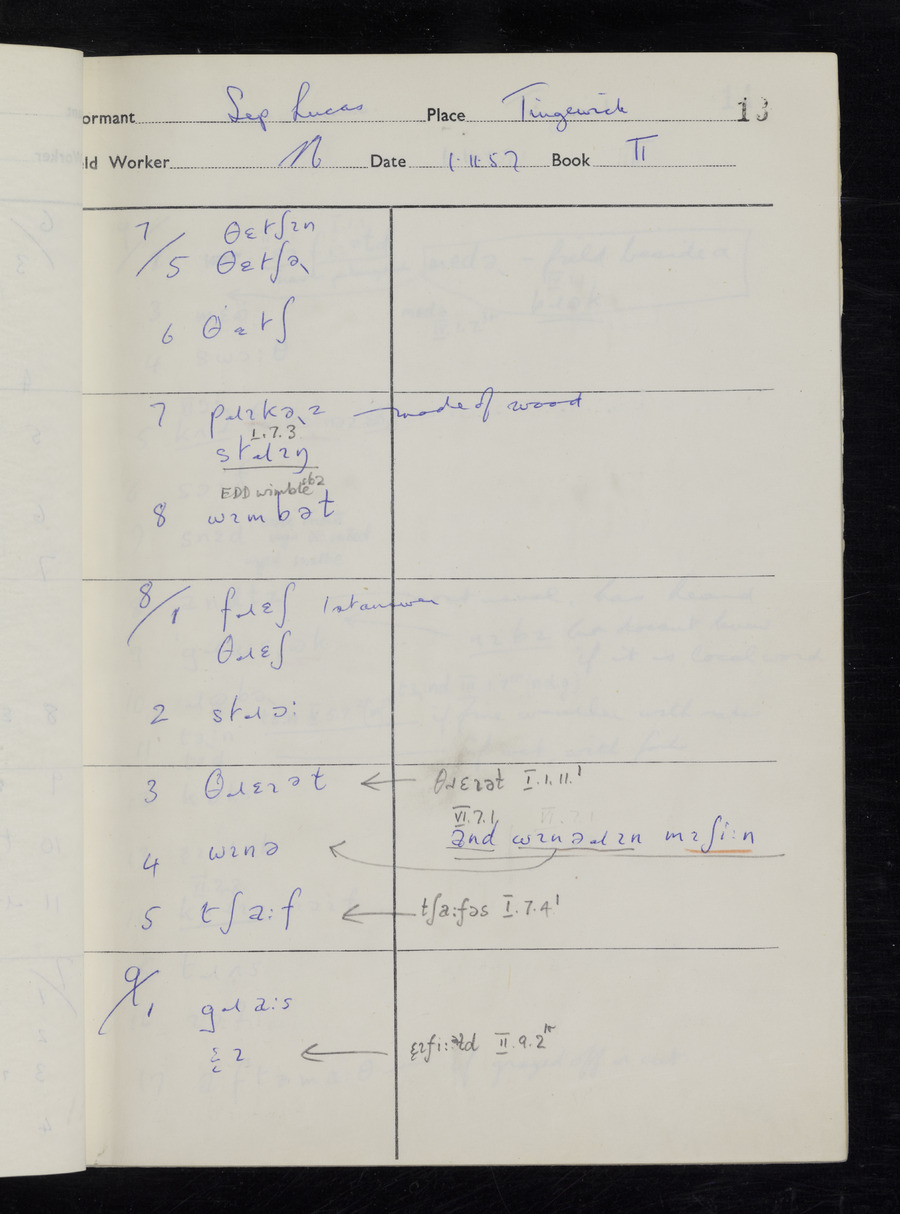 ormant Sep Lucas Place Tingewick 13
ld Worker N Date 1.11.57 Book II
7/5 θɛtʃɪn
θɛtʃə
6 θatʃ
7 made of wood
I.7.3
EDD wimble sb2
8 wɪmbət
8/1 fɹɛʃ 1st answer
θɹɛʃ
2 stɹɔː
3 θɹɛɪət ← θɹɛɪət I.1.11.¹
VI.7.1
4 wɪnə ənd wɪnəɹɪn mɪʃiːn
5 tʃaːf ← tʃaːfəs I.7.4¹
9/1 gɹaːs
II.9.2